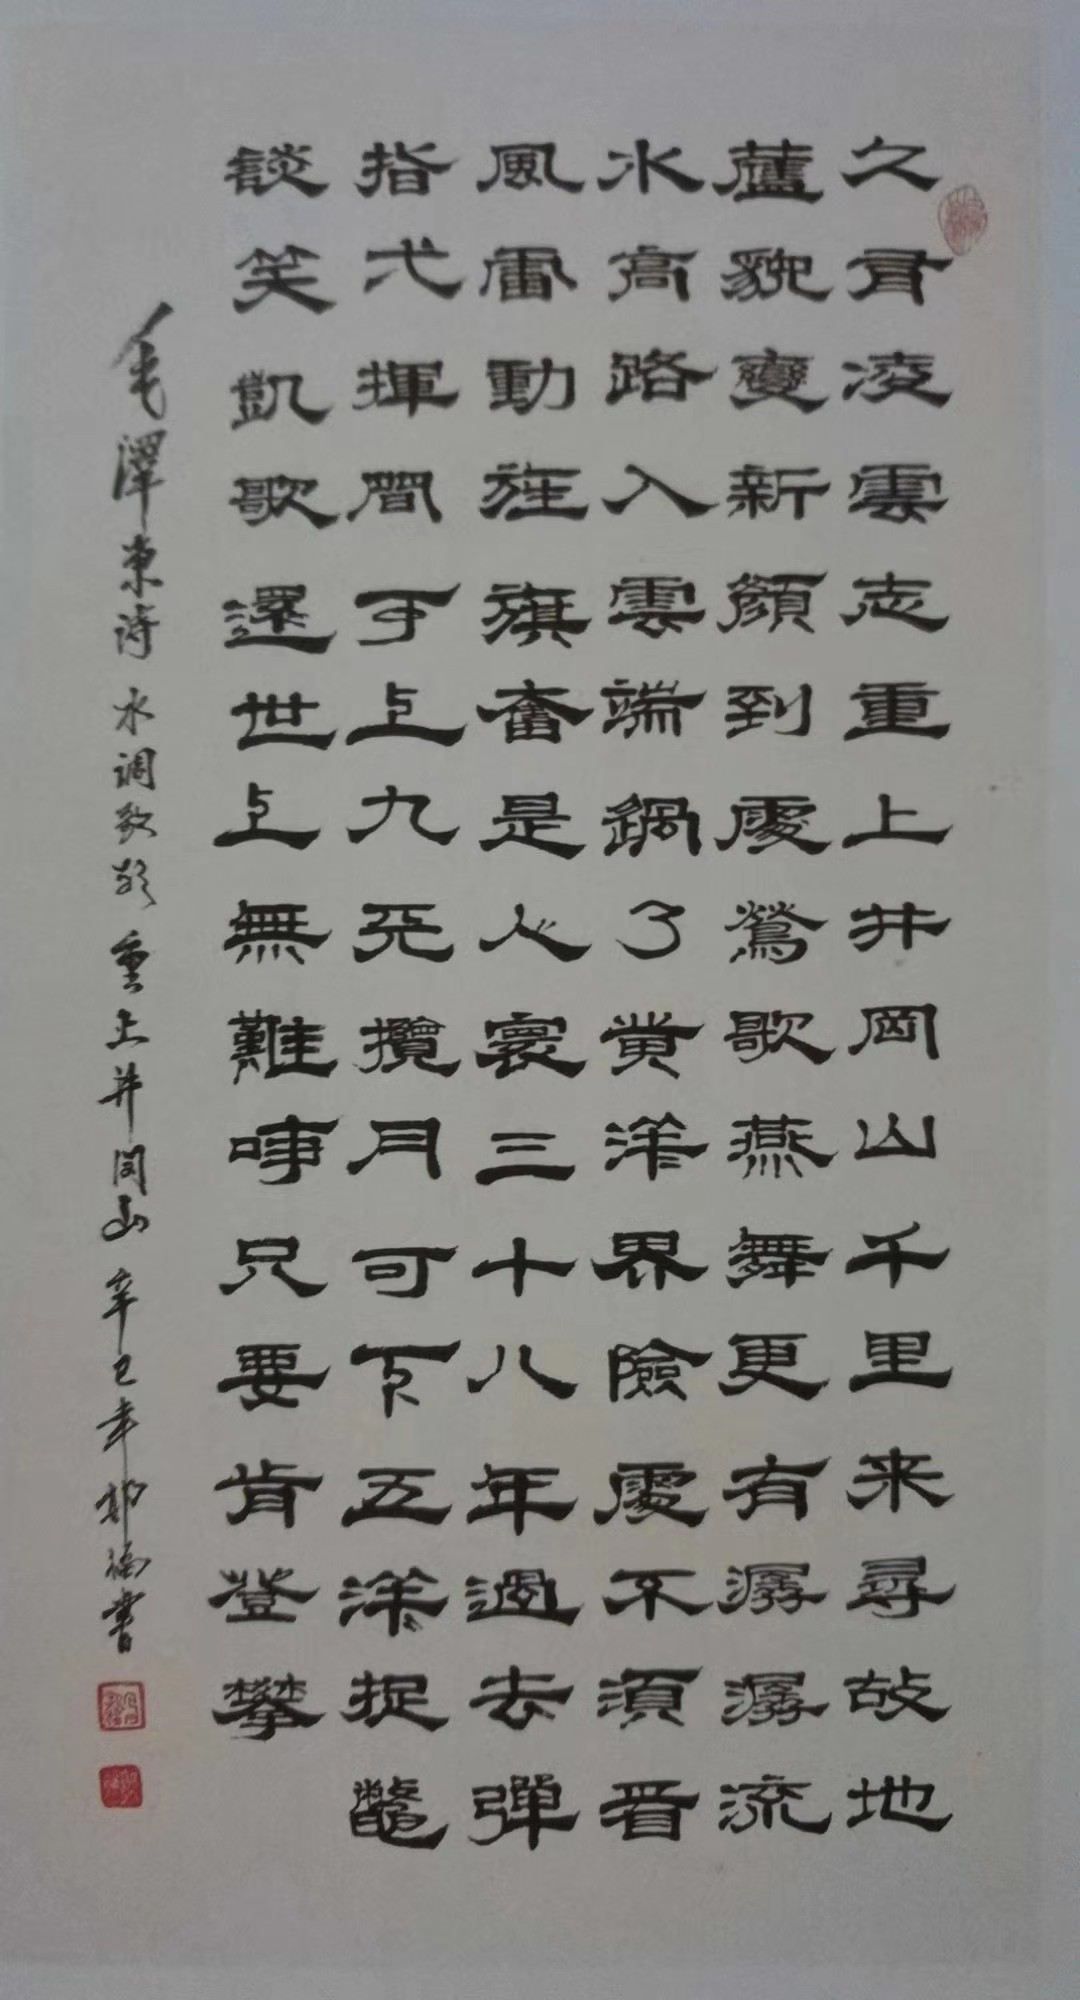 久有凌雲志重上井岡山千里来尋故地
蘆貌變新顏到處鶯歌燕舞更有潺潺流
水高路入雲端鍋了黄洋界險處不須看
風雷動旌旗奮是人寰三十八年過去彈
指弋揮間可上九天攬月可下五洋捉鼈
談笑凱歌還世上無難事只要肯登攀
毛澤東詩 水調歌頭 重上井岡山 辛巳年 福書